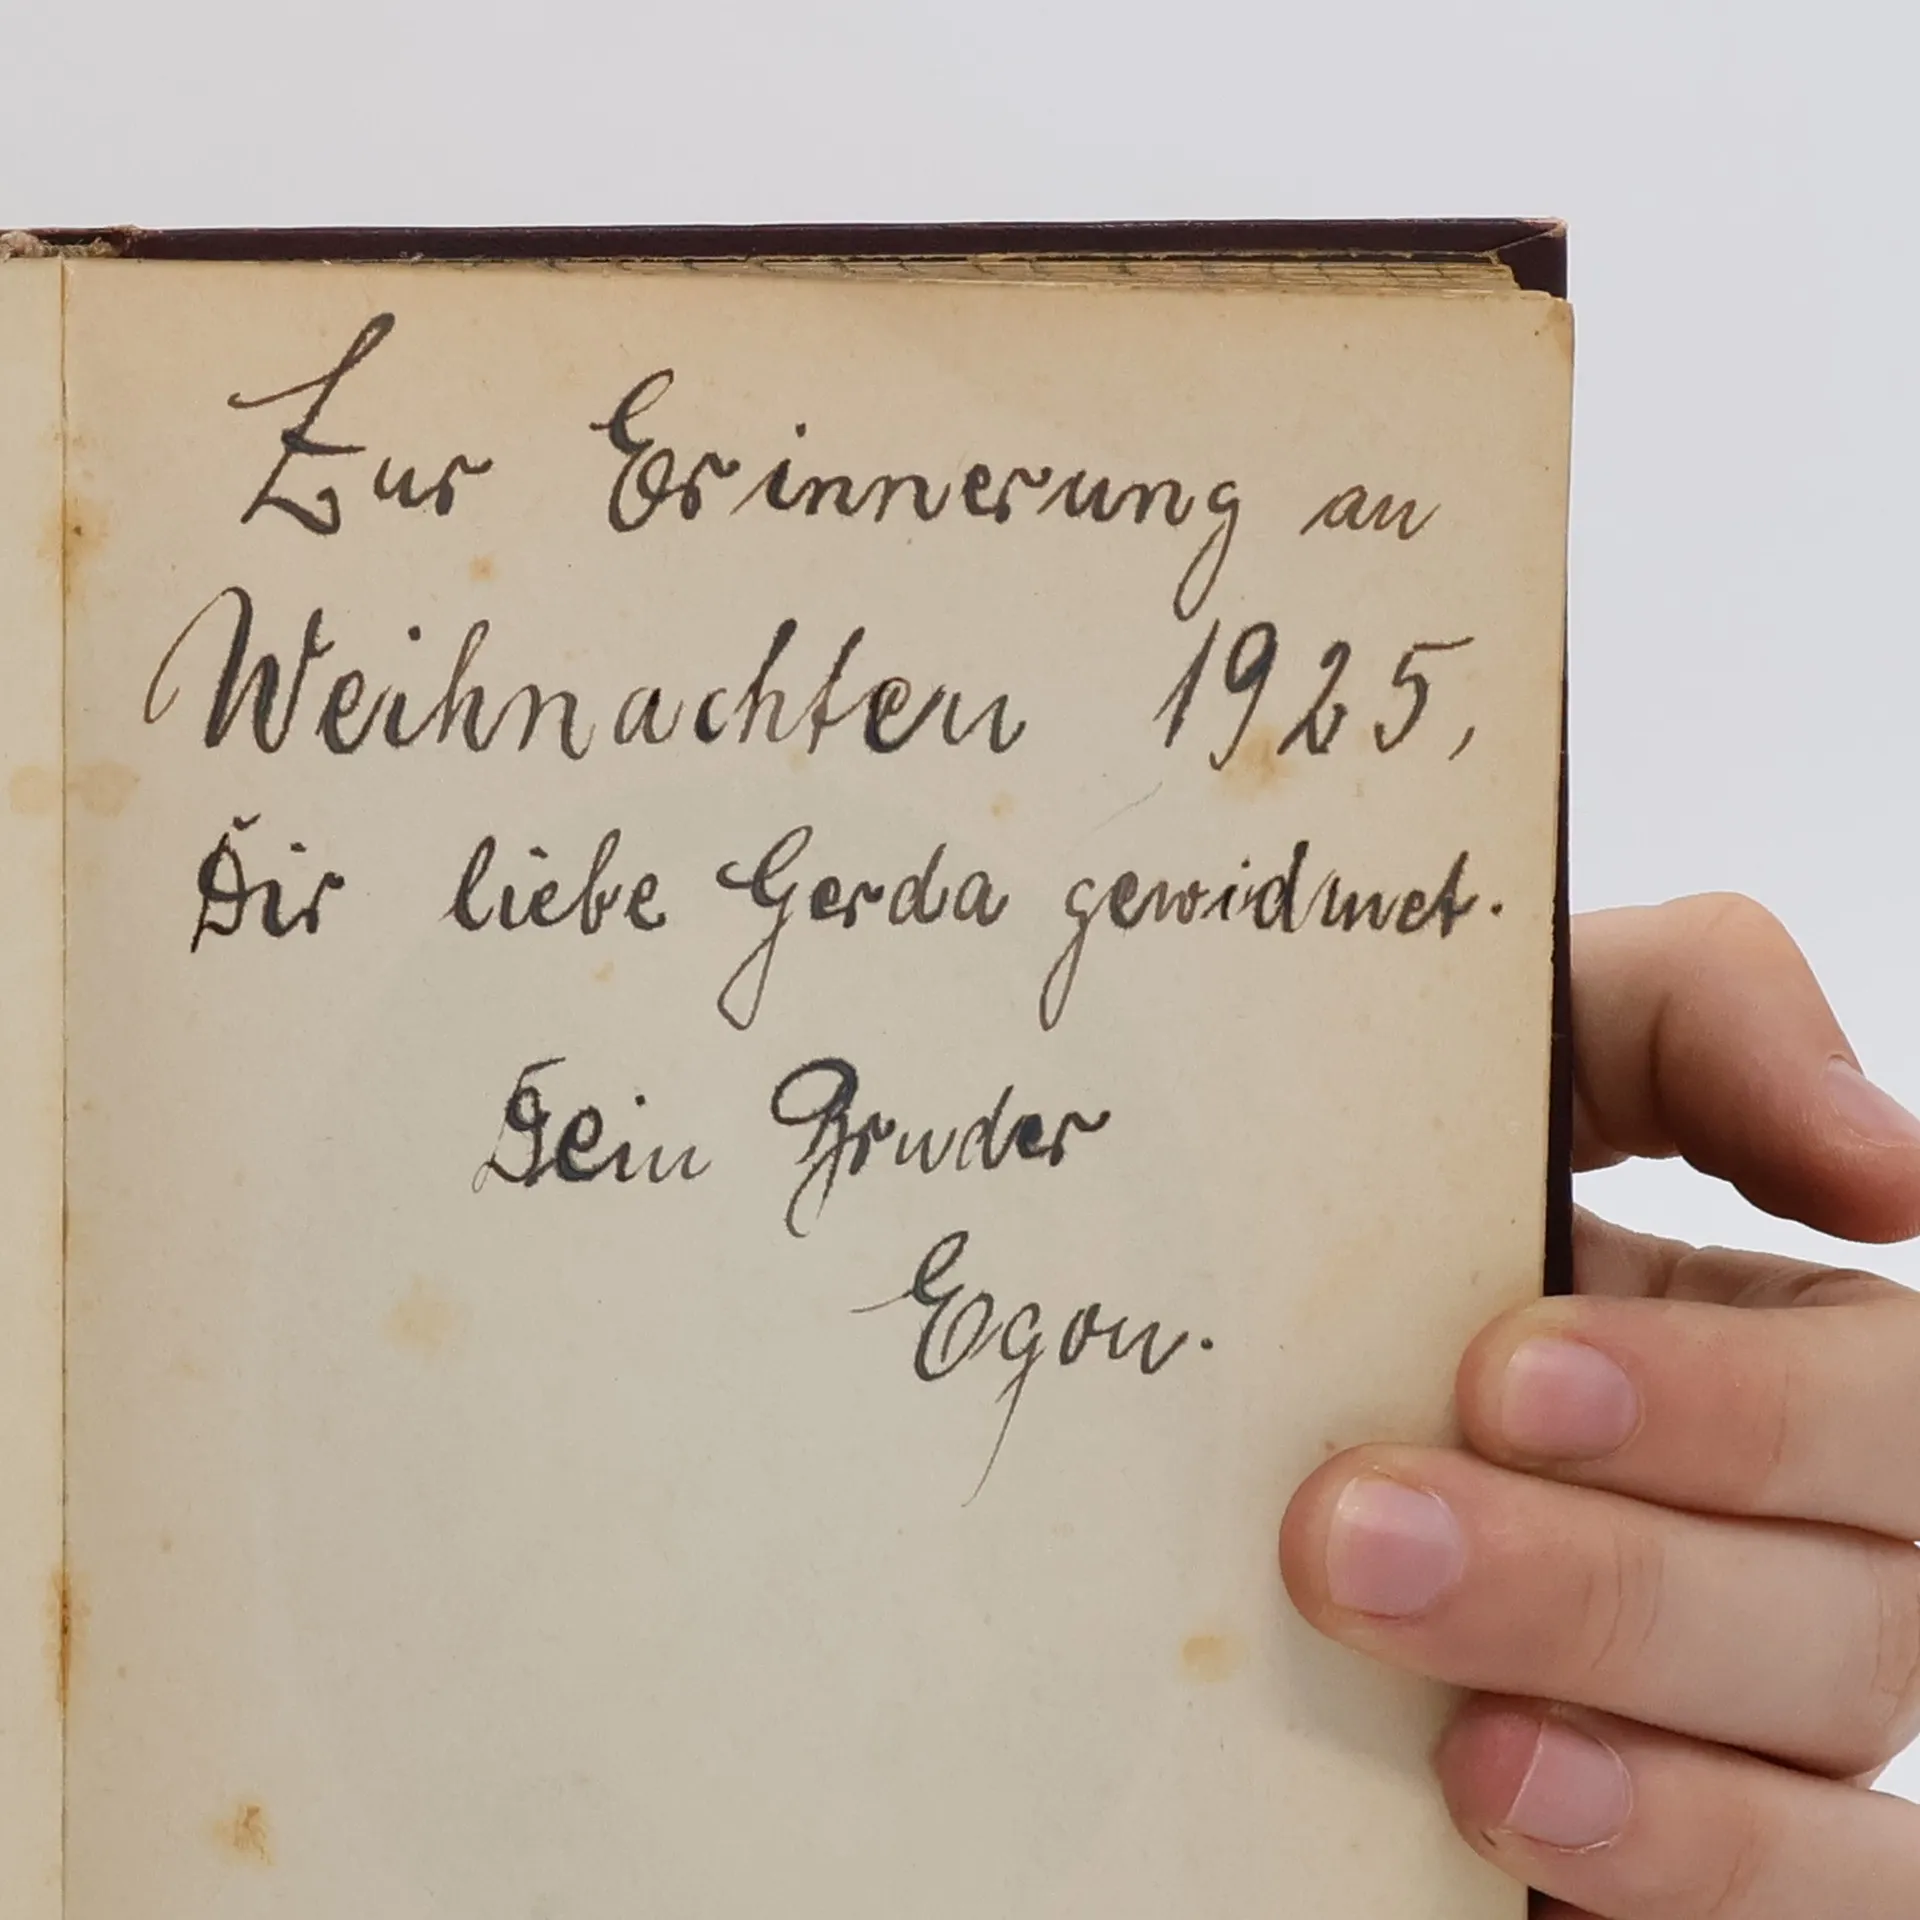 Zur Erinnerung an
Weihnachten 1925,
Dir liebe Gerda gewidmet.
Dein Bruder
Egon.